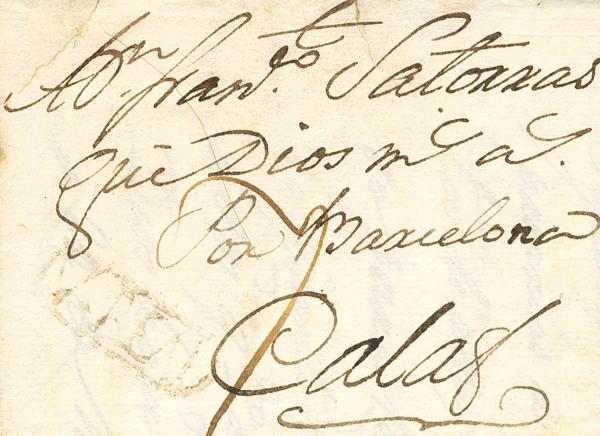 A Dn. Fran.co Satorras
que Dios ms as.
Por Barcelona
7
Calaf